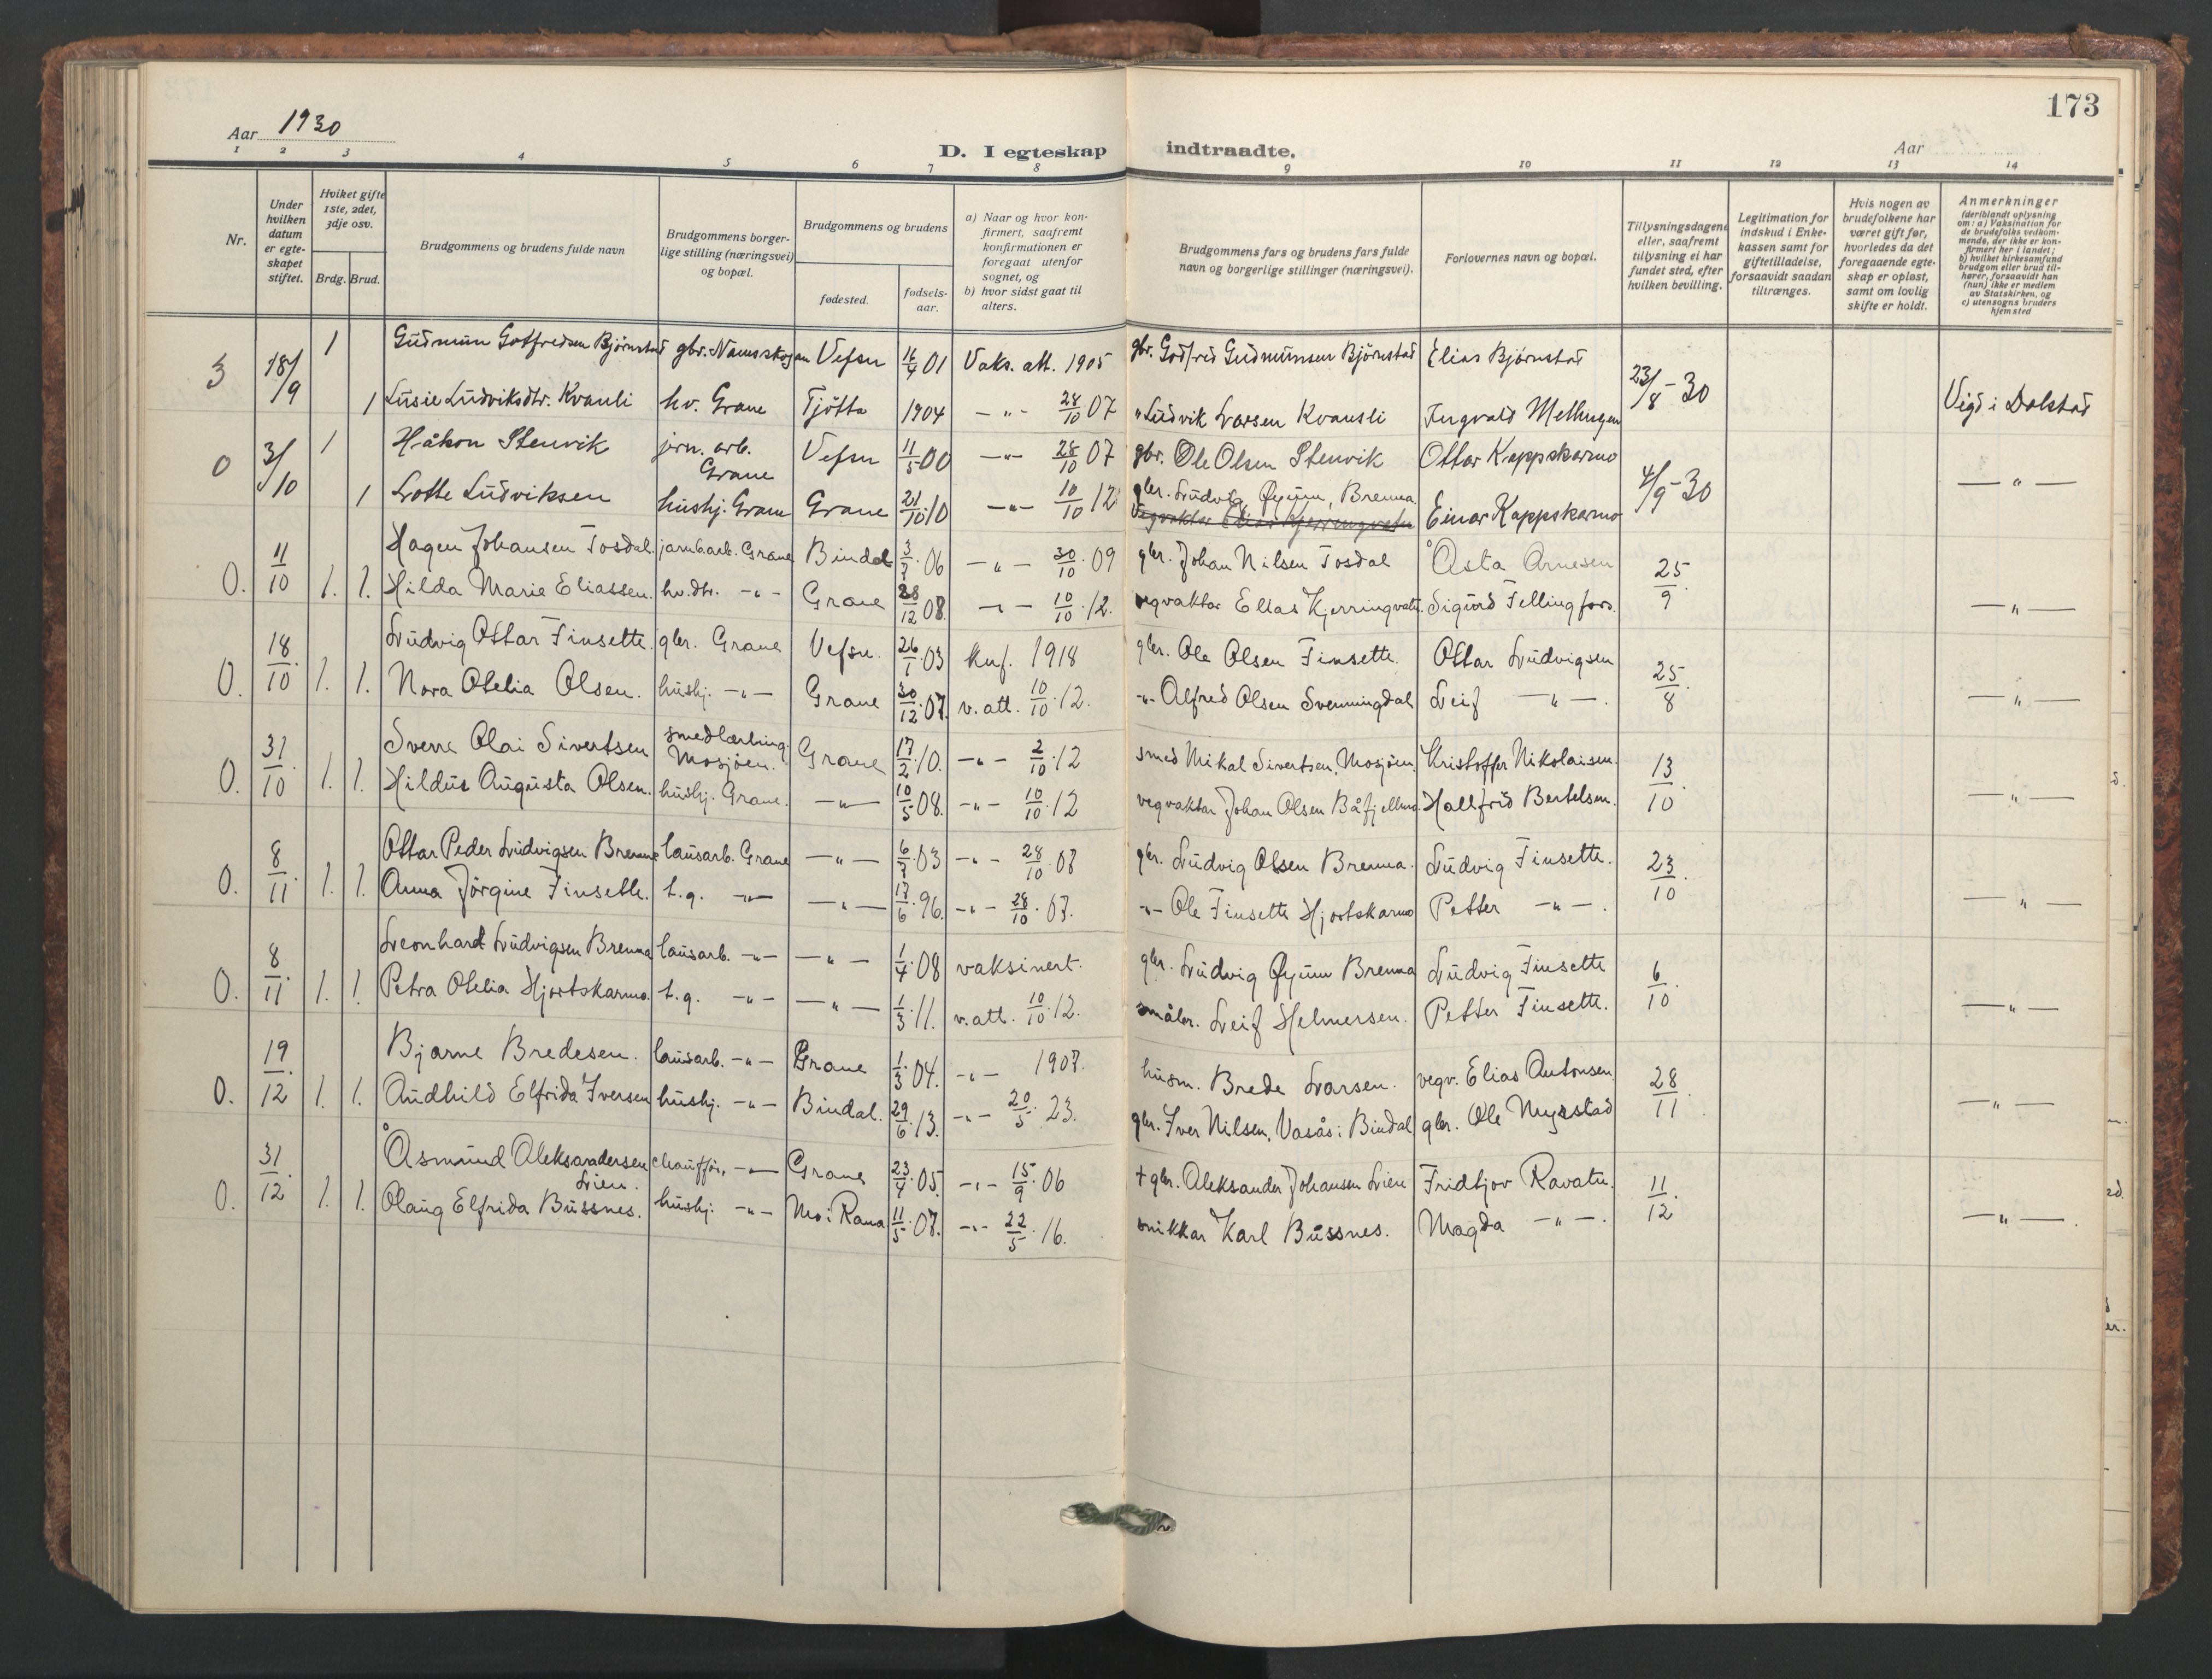 173
Aar 1930
D. I egteskap indtraadte.
Aar
1 2 3 4 5 6 7 8 9 10 11 12 13 14
Nr.
Under hvilken datum er egteskapet stiftet.
Hviket gifte 1ste, 2det, 3dje osv.
Brdg. Brud.
Brudgommens og brudens fulde navn
Brudgommens borgerlige stilling (næringsvei) og bopæl.
Brudgommens og brudens
fødested.
fødselsaar.
a) Naar og hvor konfirmert, saafremt konfirmationen er foregaat utenfor sognet, og
b) hvor sidst gaat til alters.
Brudgommens fars og brudens fars fulde navn og borgerlige stillinger (næringsvei).
Forlovernes navn og bopæl.
Tillysningsdagene eller, saafremt tillysning ei har fundet sted, efter hvilken bevilling.
Legitimation for indskud i Enkekassen samt for giftetilladelse, forsaavidt saadan tiltrænges.
Hvis nogen av brudefolkene har været gift før, hvorledes da det foregaaende egteskap er opløst, samt om lovlig skifte er holdt.
Anmerkninger
(deriblandt oplysning om: a) Vaksination for de brudefolks vedkommende, der ikke er konfirmert her i landet; b) hvilket kirkesamfund brudgom eller brud tilhører, forsaavidt han (hun) ikke er medlem av Statskirken, og c) utensogns bruders hjemsted
3 18/9 1 Gudmun Gotfredsen Bjørnstad gbr. Namsskogan Vefsn 16/4 01 Vaks. att. 1905 gbr. Godfred Gudmunsen Bjørnstad Elias Bjørnstad 23/8-30 Vigd i Dolstad
1 Lusie Ludviksdtr. Kvanli hv. Grane Tjøtta 1904 -"- 28/10 07 " Ludvik Larsen Kvansli Ingvald Methugen
0 3/10 1 Håkon Stenvik jern. arb. Grane Vefsn 11/5 00 -"- 28/10 07 gbr. Ole Olsen Stenvik Ottar Kappskarmo 4/9-30 -"-
1 Lotte Ludviksen hushj. Grane Grane 21/10 10 -"- 10/10 12 gbr. Ludvig Øyum, Brenna Einar Kappskarmo
Vegvaktar Elias Kjerringvatn
0. 11/10 1. 1. Hagen Johansen Tosdal. jarnb.arb. Grane Bindal 3/7 06 -"- 30/10 09 gbr. Johan Nilsen Tosdal Åsta Arnesen 25/9 -"-
Hilda Marie Eliassen. hv.dtr. -"- Grane 28/12 08. -"- 10/10 12. vegvaktar Elias Kjerringvatn. Sigurd Fellingfors.
0. 18/10 1. 1. Ludvig Ottar Finsette. gbr. Grane Vefsn. 26/1 03 Knf. 1918 gbr. Ole Olsen Finsette. Ottar Ludvigsen 25/8 -"-
Nora Otelia Olsen. hushj. -"- Grane 30/12 07. v. att. 10/10 12. -"- Alfred Olsen Svenningdal Leif -"-.
0. 31/10 1. 1. Sverre Olai Sivertsen smedlærling. Mosjøen. Grane 17/2 10. -"- 2/10 12 smed Mikal Sivertsen, Mosjøen. Kristoffer Nikolaisen. 13/10 -"-
Hildur Augusta Olsen. hushj. Grane. -"- 10/5 08. -"- 10/10 12 vegvaktar Johan Olsen Båfjellmo. Hallfrid Bertelsen.
0. 8/11 1. 1. Ottar Peder Ludvigsen Brenna lausarb. Grane -"- 6/7 03 -"- 28/10 07 gbr. Ludvig Olsen Brenna. Ludvig Finsette. 23/10 -"-
Anna Jørgine Finsette. t.g. -"- -"- 17/6 96. -"- 28/10 07. -"- Ole Finsette Hjortskarmo Petter -"-.
0. 8/11 1. 1. Leonhard Ludvigsen Brenna lausarb. -"- -"- 1/4 08 vaksinert. gbr. Ludvig Øyum Brenna Ludvig Finsette 6/10 -"-
Petra Otelia Hjortskarmo. t.g. -"- -"- 1/3 11. v.att. 10/10 12. småbr. Leif Helmersen. Petter Finsette.
0. 19/12 1. 1. Bjarne Bredesen. lausarb. -"- Grane 1/3 04. -"- 1907. husm. Brede Larsen. vegv. Elias Antonsen 28/11 -"-
Audhild Elfrida Iversen hushj. -"- Bindal. 29/6 13. -"- 20/5 23. gbr. Iver Nilsen, Vasås i Bindal gbr. Ole Myrstad
0. 31/12 1. 1. Åsmund Aleksandersen Lien. chauffør, -"- Grane 23/4 05. -"- 15/9 06 + gbr. Aleksander Johansen Lien Fridtjov Ravatn. 11/12 -"-.
Olaug Elfrida Bussnes. hushj. -"- Mo i Rana 11/5 07. -"- 22/5 16. snikkar Karl Bussnes. Magda -"-.